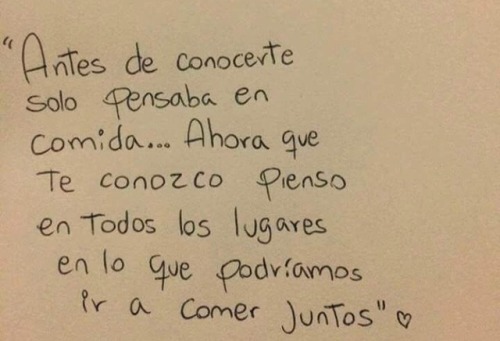 "Antes de conocerte
solo pensaba en
comida... Ahora que
te conozco pienso
en todos los lugares
en lo que podríamos
ir a comer juntos" ♡